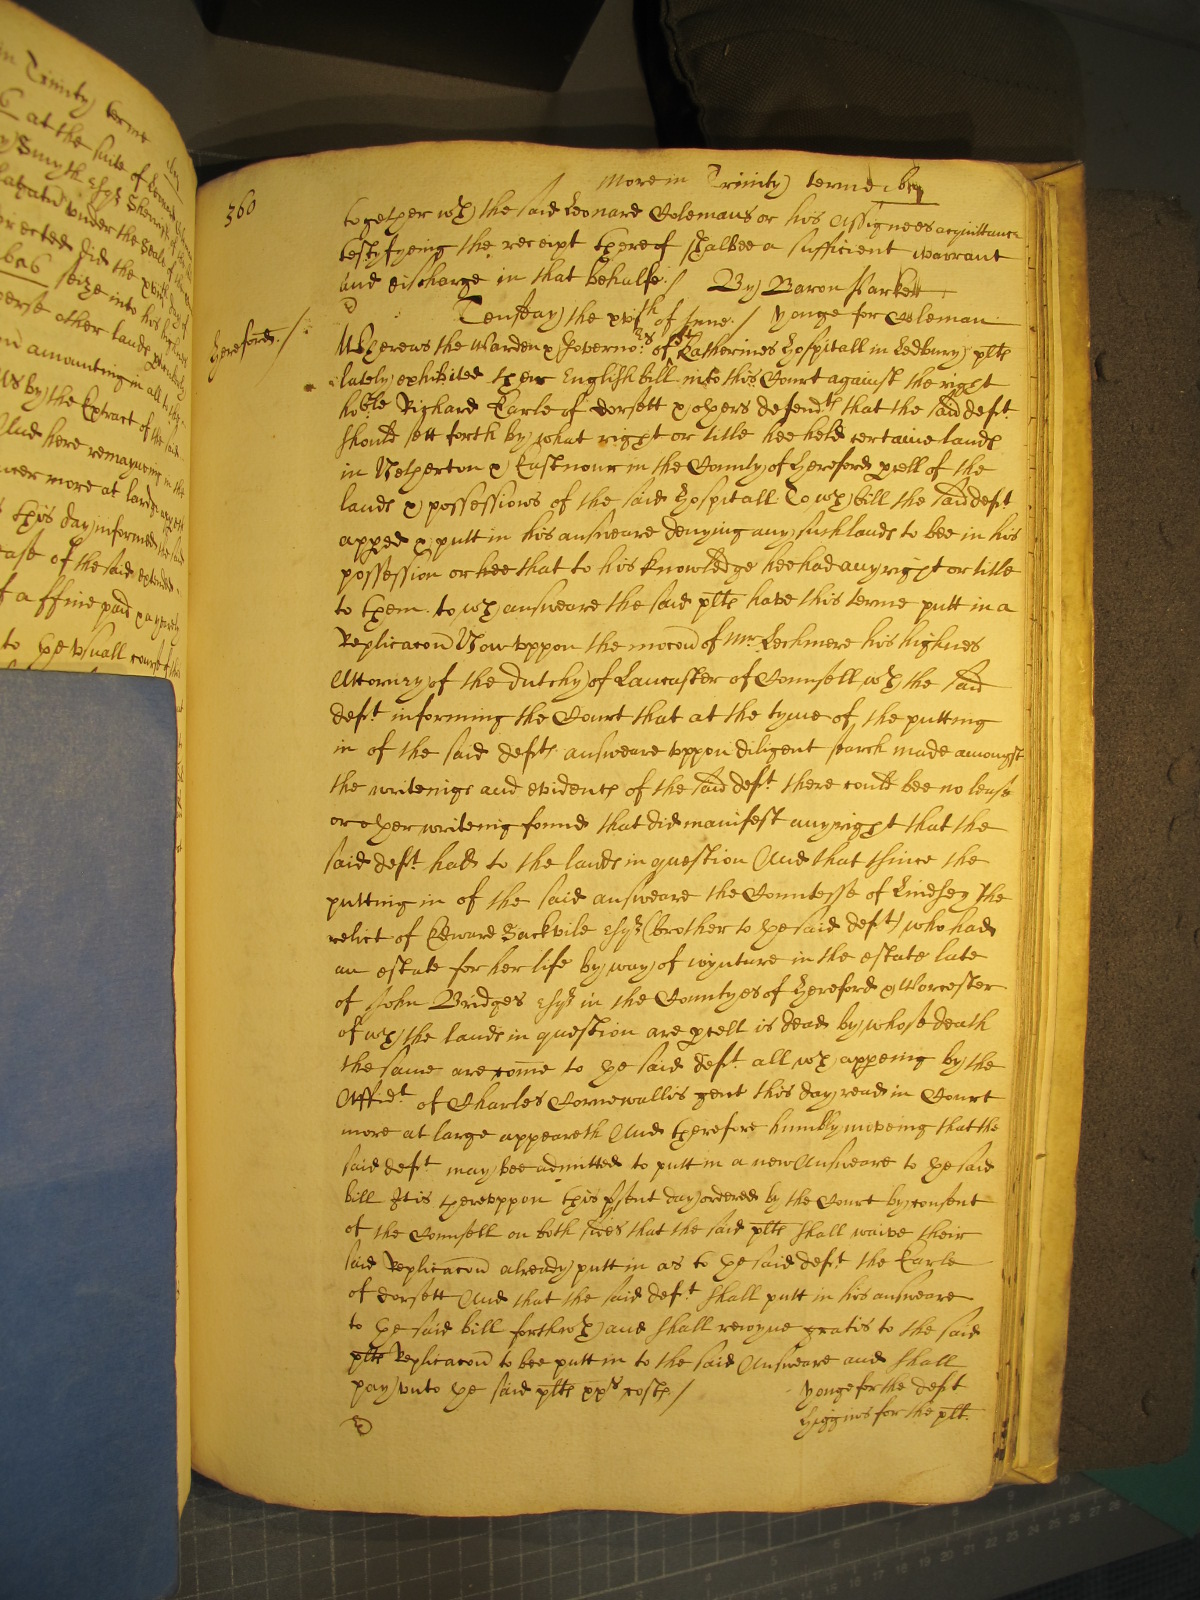 in Trinity terme
6 at the suite of Leonard
Smyth Esqr Sherriff of
under the Seale of
directed did the xviith day of
1656 seize into his highnes
diverse other lands
amounting in all to the
by the Extract of the said
And here remayneing in the
more at lardge
this day informed the said
of the said extended
of a ffine paid
to ye usuall course of this
360
More in Trinity terme
together wch the said Leonard Colemans or his Assignees acquittance
testifyeing the receipt thereof shalbee a sufficient warrant
and discharge in that behalfe / By Baron Parker
Tensday the xvith of June / Yonge for Coleman
Hereford /
Whereas the Warden & Governors of St Katherines Hospitall in Ledbury plts
lately exhibited their English bill into this Court against the right
hoble Richard Earle of Dorsett & others defendts that the said deft
should sett forth by what right or title hee held certaine lands
in Netherton & Eastnour in the County of Hereford pcell of the
lands & possessions of the said Hospitall To wch bill the said deft
apped & putt in his answeare denying any such lands to bee in his
possession or hee that to his knowledge hee had any right or title
to them to wch answeare the said plts have this terme putt in a
Replicacon Now uppon the mocon of Mr Lechmere his highnes
Attorney of the Dutchy of Lancaster of Counsell wth the said
deft informing the Court that at the tyme of the putting
in of the said defts answeare uppon diligent search made amongst
the writeings and evidents of the said deft there could bee no lease
or other writeing found that did manifest any right that the
said deft hath to the lands in question And that thince the
putting in of the said answeare the Countesse of Lindsey the
relict of Edward Sackvile Esqr (brother to ye said deft) who had
an estate for her life by way of ioynture in the estate late
of John Bridges Esqr in the Countyes of Hereford & Worcester
of wch the lands in question are pcell is dead by whose death
the same are come to ye said deft all wch appeing by the
Affidt of Charles Cornewallis gent this day read in Court
more at large appeareth And therefore humbly moveing that the
said deft may bee admitted to putt in a new Answeare to ye said
bill It is thereuppon this psent day ordered by the Court by consent
of the Counsell on both sides that the said plts shall waive their
said Replicacon already putt in as to ye said deft the Earle
of Dorsett And that the said deft shall putt in his answeare
to ye said bill forthwth and shall reioyne gratis to the said
plts Replicacon to bee putt in to the said Answeare and shall
pay unto ye said plts costs /
Yonge for the deft
Higgins for the plt